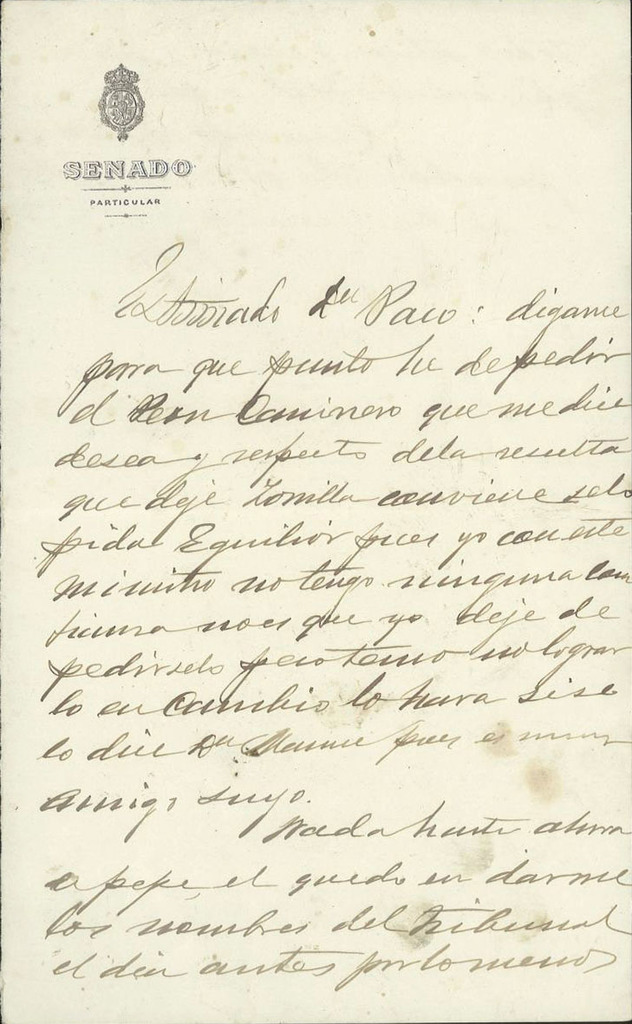 SENADO
PARTICULAR
Estimado Dn Paco: digame
para que punto he de pedir
el Peon Caminero que me dice
desea y respecto de la resulta
que deje Zorrilla conviene selo
pida Eguilior pues yo con este
ministro no tengo ninguna con
fianza no es que yo deje de
pedirselo pero temo no lograr
lo en Cambio lo hara si se
lo dice Dn Manuel pues es muy
amigo suyo.
Nada hasta ahora
a pepe el quedo en darme
los nombres del tribunal
el dia antes por lo menos